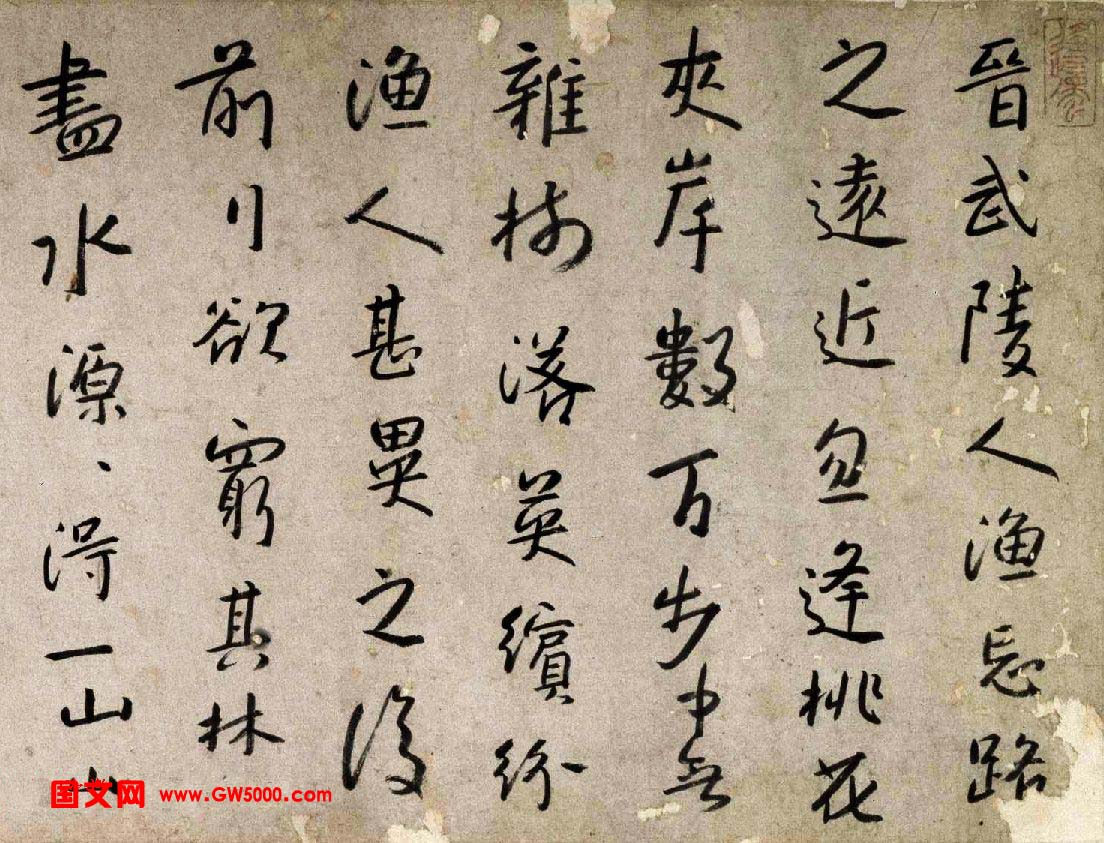 晉武陵人漁忘路
之遠近忽逢桃花
夾岸數萬步中無
雜樹落英繽紛
漁人甚異之復
前行欲窮其林
盡水源、得一山山
国文网 www.GW5000.com